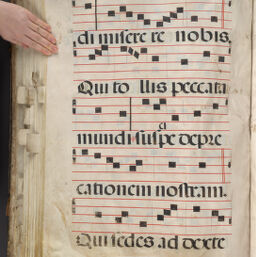 di misere re nobis
Qui to llis peccata
mundi suspe depre
cationem nostram.
Qui sedes ad dexte